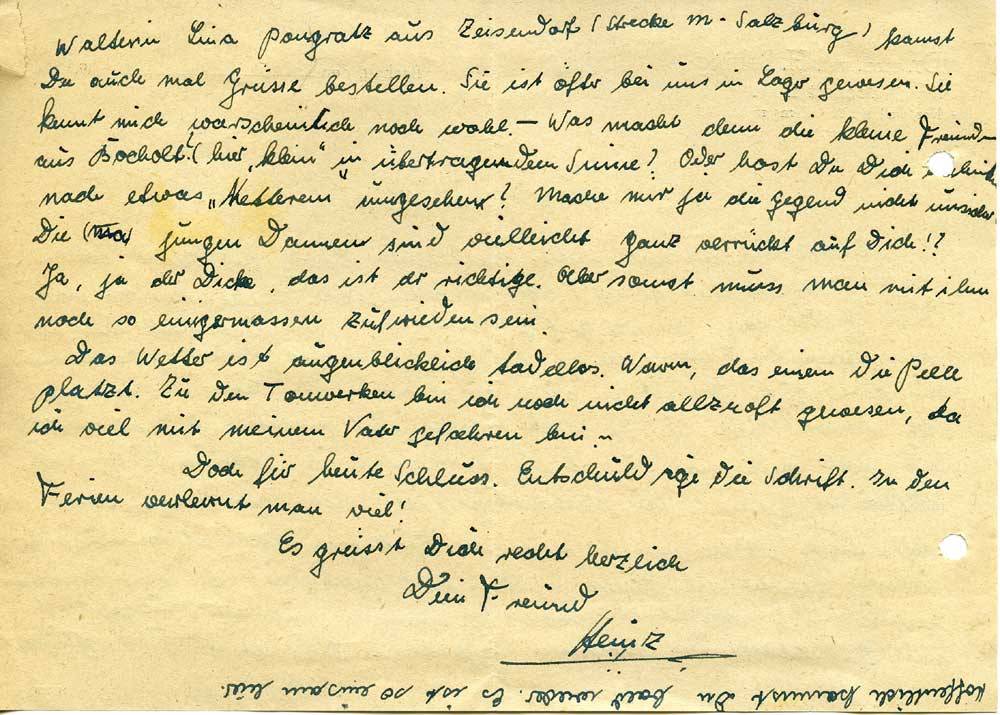 Walterin Lina Pongratz aus Zeisendorf (Strecke M-Salzburg) kannst
Du auch mal Grüsse bestellen. Sie ist öfter bei uns in Lager gewesen. Sie
kennt mich warscheinlich noch wohl. – Was macht denn die kleine Freundin
aus Bocholt? (hier „klein" in übertragendem Sinne? Oder hast Du Dich
nach etwas „Netterem" umgesehen? Mache mir ja die Gegend nicht unsicher
Die jungen Damen sind vielleicht ganz verrückt auf Dich!?
Ja, ja der Dicke, das ist der richtige. Aber sonst muss man mit ihm
noch so einigermassen zufrieden sein.
Das Wetter ist augenblicklich tadellos. Warm, das einem die Pelle
platzt. Zu den Tonwerken bin ich noch nicht allzuoft gewesen, da
ich viel mit meinem Vater gefahren bin. –
Doch für heute Schluss. Entschuldige die Schrift. In den
Ferien verlernt man viel!
Es grüsst Dich recht herzlich
Dein Freund
Heinz
Hoffentlich kommst Du bald wieder. Es ist so einsam hier.